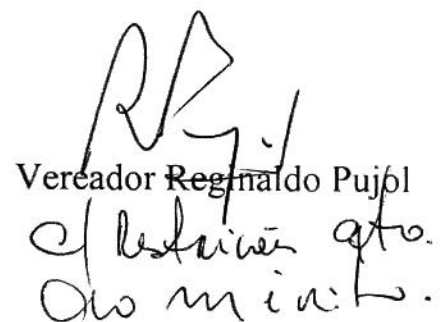 Vereador Reginaldo Pujol
c/ Restrições qto.
ao mérito.